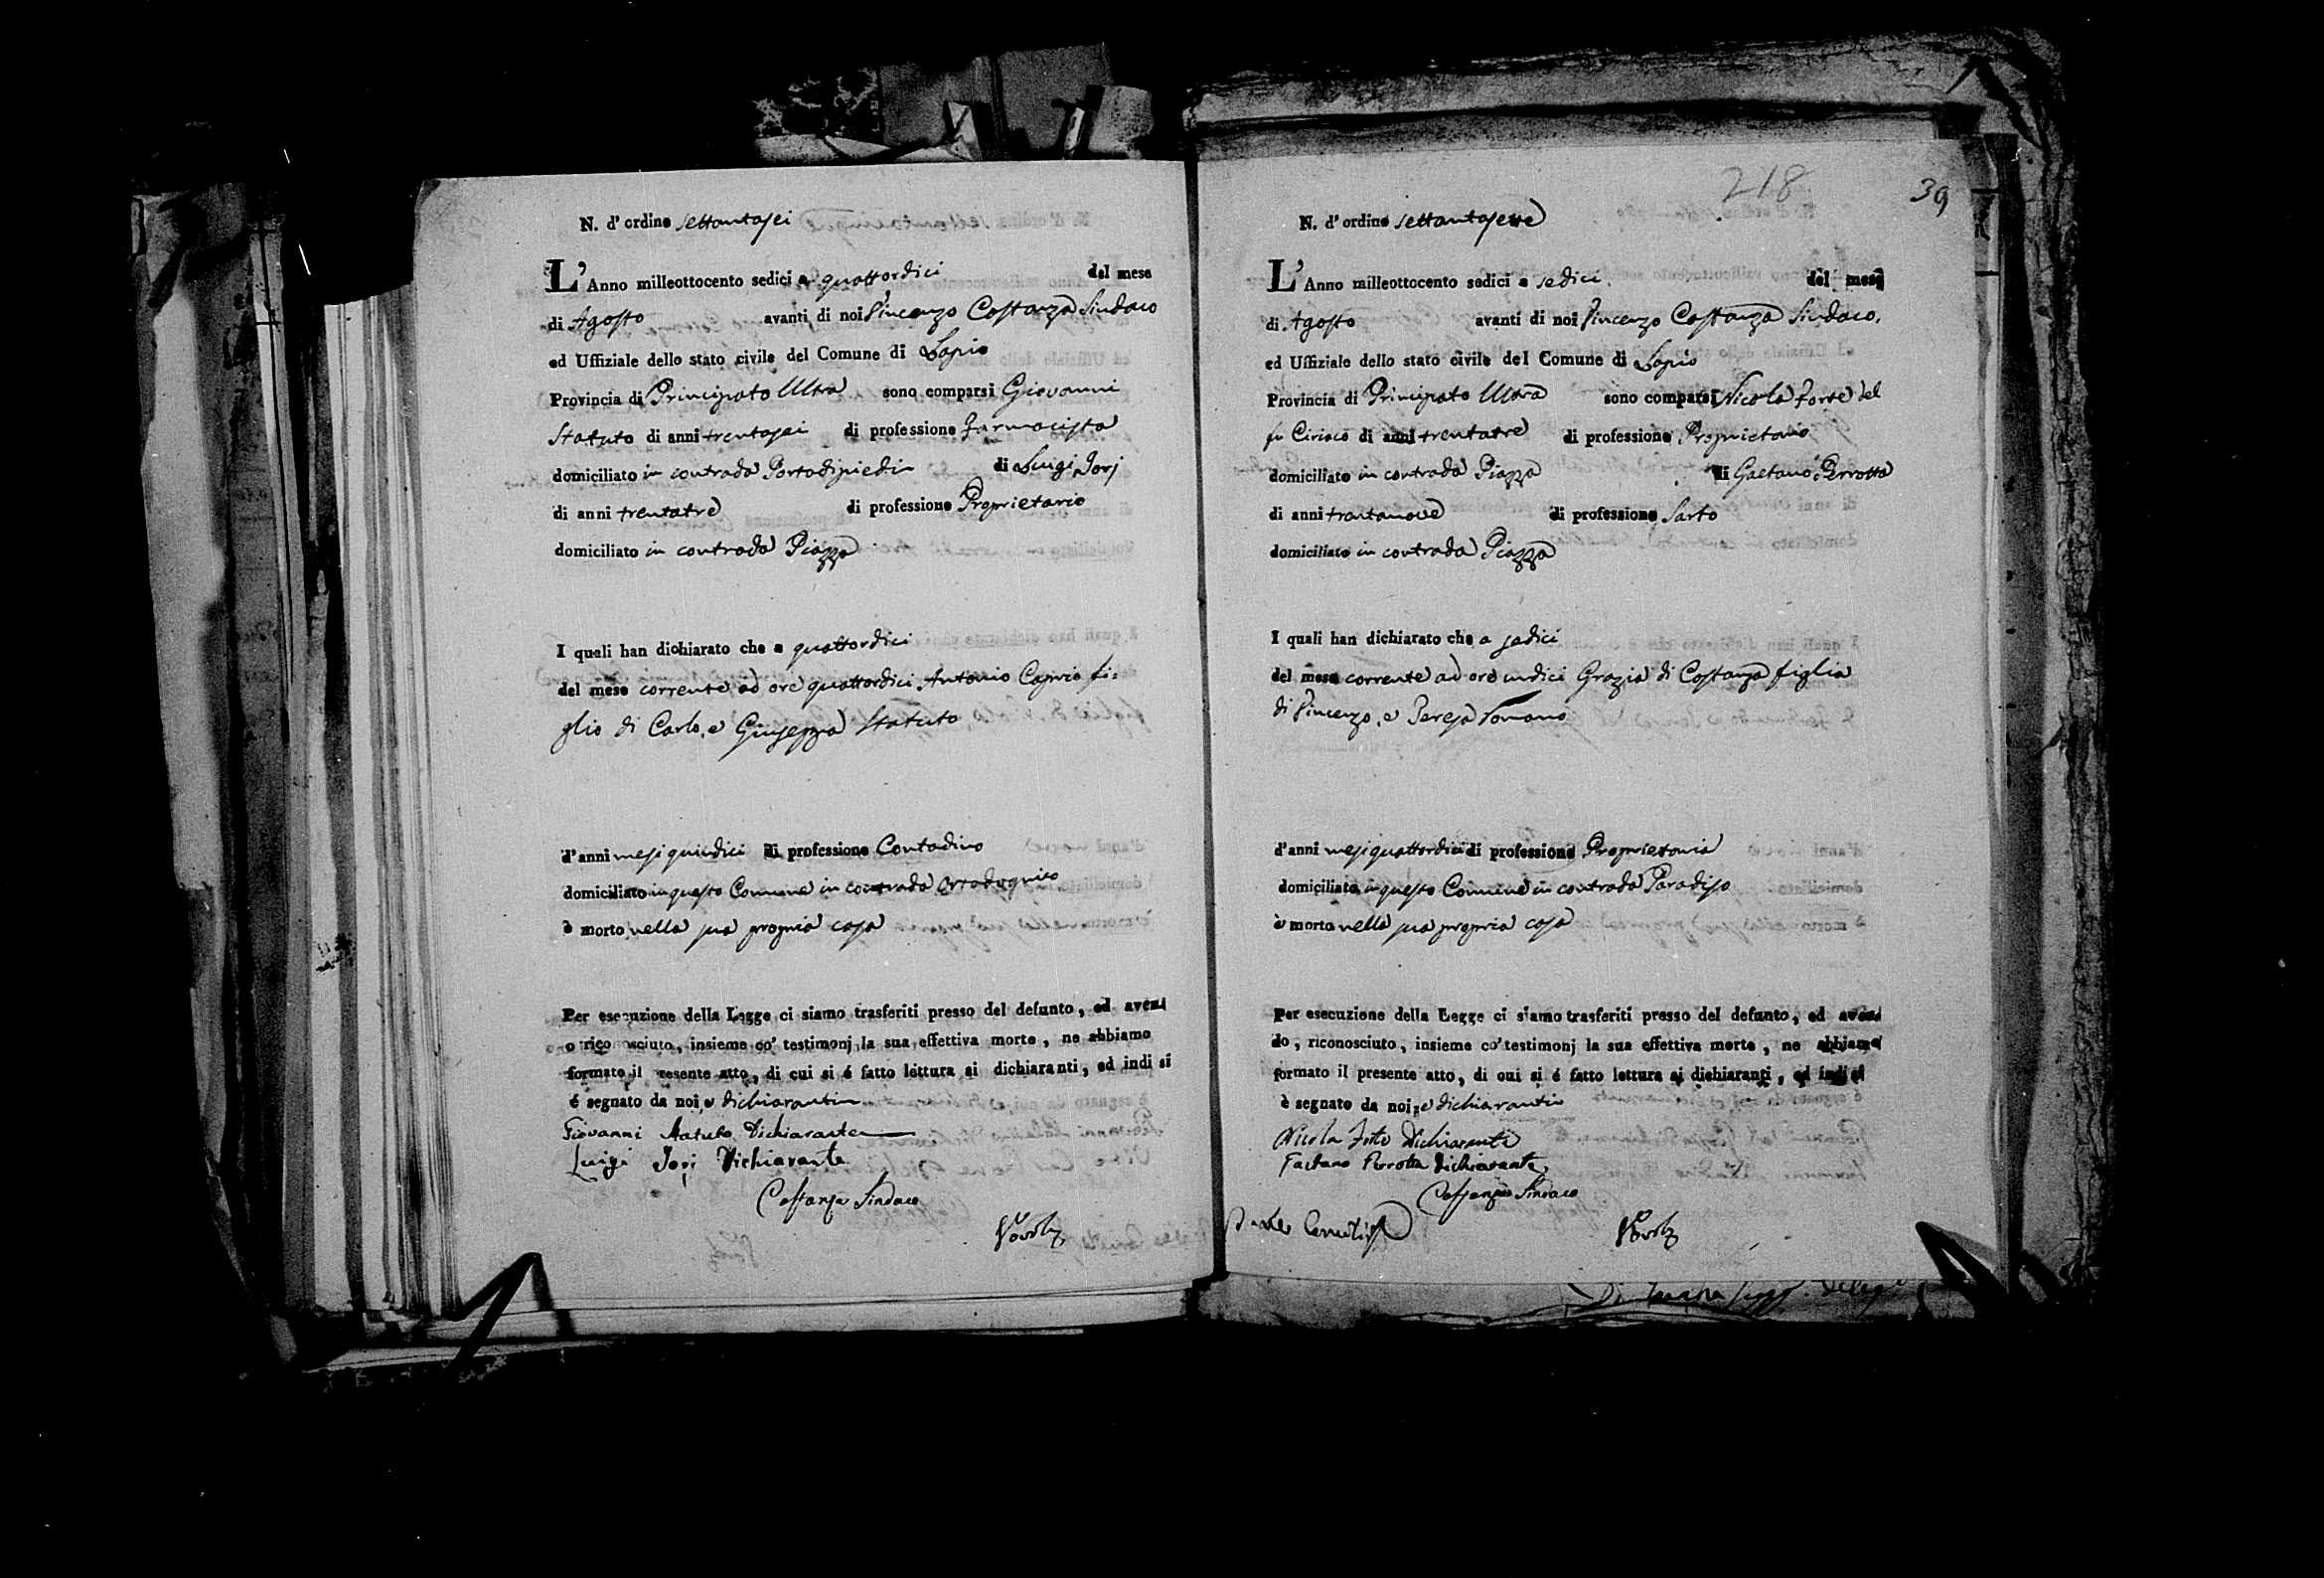 N. d' ordine settantasei
L' Anno milleottocento sedici a quattordici del mese
di Agosto avanti di noi Vincenzo Costanza Sindaco
ed Uffiziale dello stato civile del Comune di Lapio
Provincia di Principato Ultra sono comparsi Giovanni
Statuto di anni trentasei di professione Farmacista
domiciliato in contrada Portadipiedi di Luigi Jorj
di anni trentatre di professione Proprietario
domiciliato in contrada Piazza
I quali han dichiarato che a quattordici
del mese corrente ad ore quattordici Antonio Caprio fi=
glio di Carlo, e Giuseppa Statuto
d'anni mesi quindici di professione Contadino
domiciliato in questo Comune in contrada
è morto nella sua propria casa
Per esecuzione della Legge ci siamo trasferiti presso del defunto, ed aven
o rico osciuto, insieme co' testimonj la sua effettiva morte, ne abbiamo
formato il resente atto, di cui si é fatto lettura ai dichiaranti, ed indi si
é segnato da noi, e dichiaranti
Giovanni Statuto Dichiarante
Luigi Jorj Dichiarante
Costanza Sindaco
218
39
N. d' ordine settantasette
L' Anno milleottocento sedici a sedici del mese
di Agosto avanti di noi Vincenzo Costanza Sindaco.
ed Uffiziale dello stato civile del Comune di Lapio
Provincia di Principato Ultra sono comparsi Nicola Forte del
fu Ciriaco di anni trentatre di professione Proprietario
domiciliato in contrada Piazza di Gaetano Perrotta
di anni trentanove di professione Sarto
domiciliato in contrada Piazza
I quali han dichiarato che a sedici
del mese corrente ad ore undici Grazia di Costanza figlia
di Vincenzo, e Teresa Romano
d'anni mesi quattordici di professione Proprietaria
domiciliato in questo Comune in contrada Paradiso
è morto nella sua propria casa
Per esecuzione della Legge ci siamo trasferiti presso del defunto, ed aven
do, riconosciuto, insieme co' testimonj la sua effettiva morte, ne abbiamo
formato il presente atto, di cui si é fatto lettura ai dichiaranti, ed indi si
è segnato da noi, e dichiaranti
Nicola Forte Dichiarante
Gaetano Perrotta Dichiarante
Costanza Sindaco